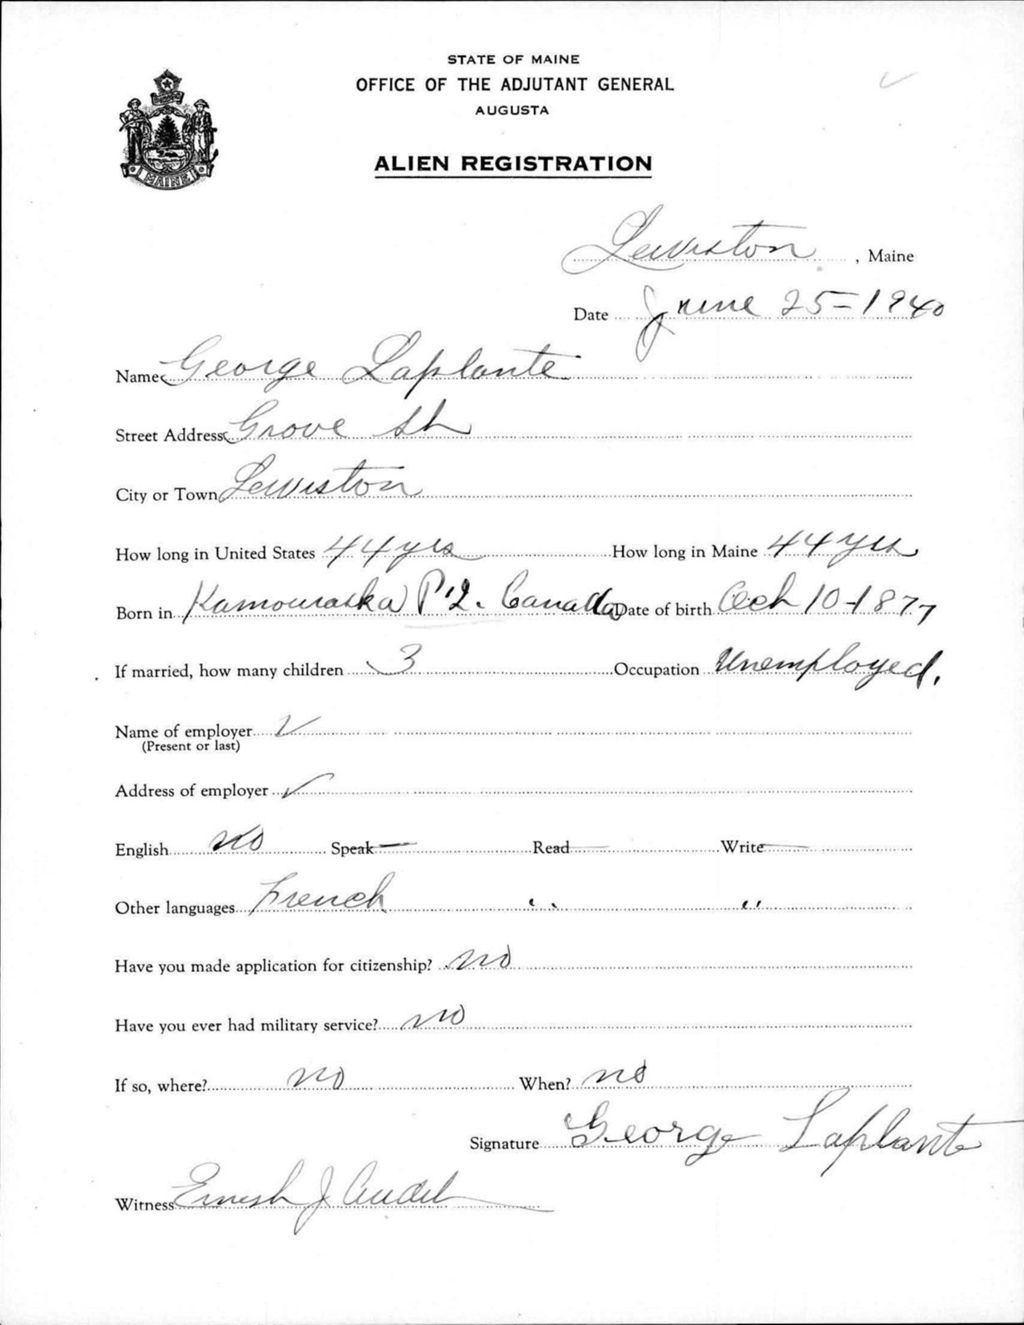 STATE OF MAINE
OFFICE OF THE ADJUTANT GENERAL
AUGUSTA
ALIEN REGISTRATION
MAINE
Lewiston, Maine
Date June 25-1940
Name George Laplante
Street Address Grove St
City or Town Lewiston
How long in United States 44 yrs How long in Maine 44 yrs
Born in Kamouraska P.Q. Canada Date of birth Oct 10-1877
If married, how many children 3 Occupation Unemployed.
Name of employer
(Present or last)
Address of employer
English no Speak — Read — Write —
Other languages French " "
Have you made application for citizenship? no
Have you ever had military service? no
If so, where? no When? no
Signature George Laplante
Witness Ernest J